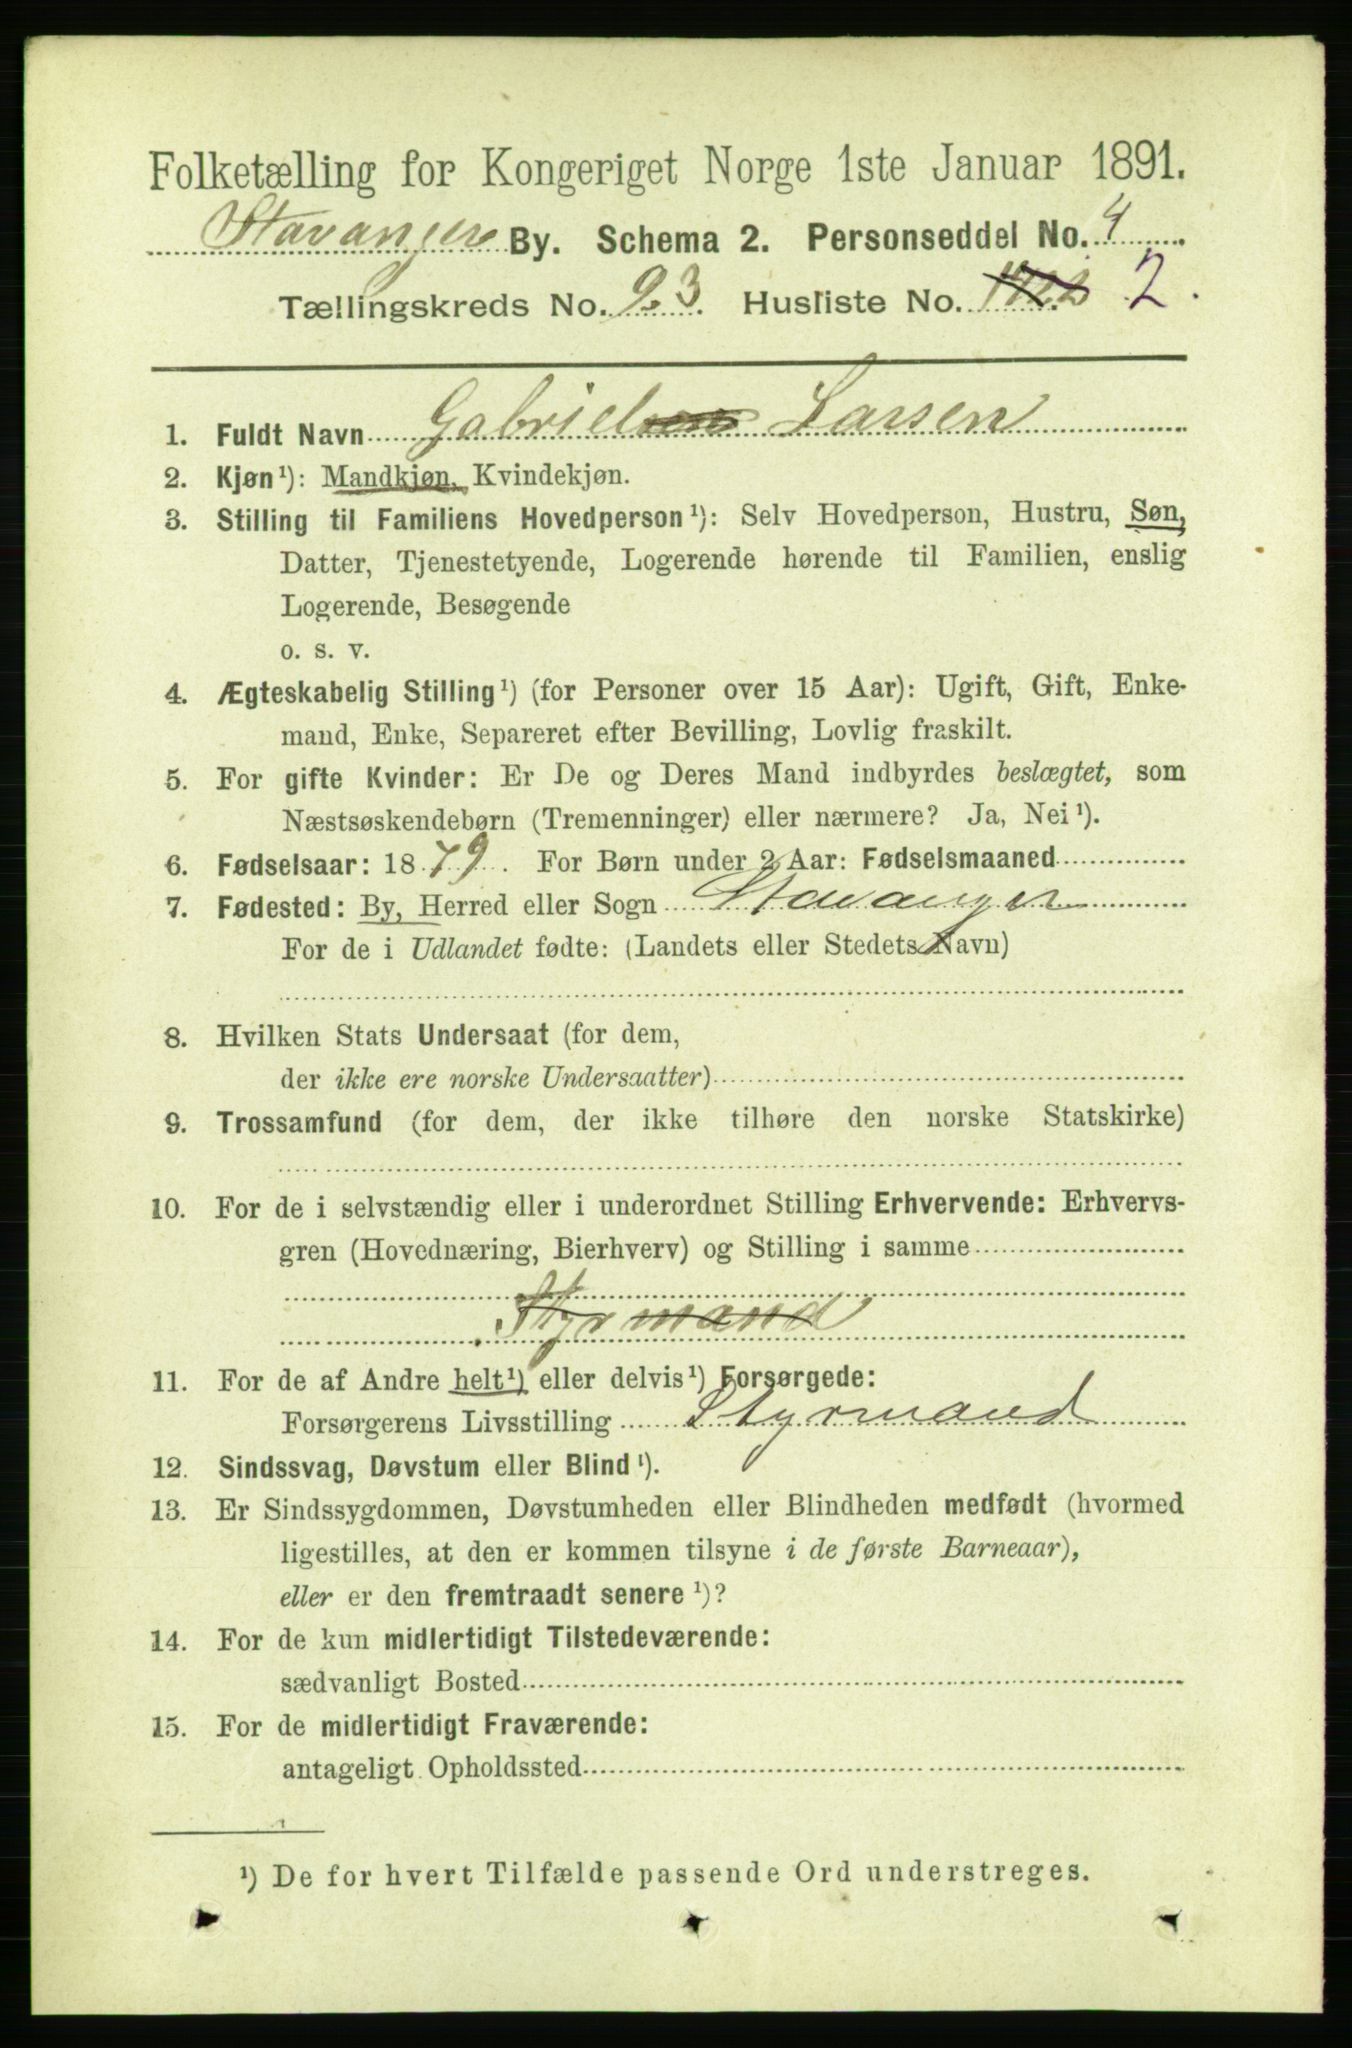 Folketælling for Kongeriget Norge 1ste Januar 1891.
Stavanger By. Schema 2. Personseddel No. 4
Tællingskreds No. 23. Husliste No. 2.
1. Fuldt Navn Gabrielsen Larsen
2. Kjøn¹): Mandkjøn, Kvindekjøn.
3. Stilling til Familiens Hovedperson¹): Selv Hovedperson, Hustru, Søn,
Datter, Tjenestetyende, Logerende hørende til Familien, enslig
Logerende, Besøgende
o. s. v.
4. Ægteskabelig Stilling¹) (for Personer over 15 Aar): Ugift, Gift, Enke-
mand, Enke, Separeret efter Bevilling, Lovlig fraskilt.
5. For gifte Kvinder: Er De og Deres Mand indbyrdes beslægtet, som
Næstsøskendebørn (Tremenninger) eller nærmere? Ja, Nei¹).
6. Fødselsaar: 1879. For Børn under 2 Aar: Fødselsmaaned
7. Fødested: By, Herred eller Sogn Stavanger
For de i Udlandet fødte: (Landets eller Stedets Navn)
8. Hvilken Stats Undersaat (for dem,
der ikke ere norske Undersaatter)
9. Trossamfund (for dem, der ikke tilhøre den norske Statskirke)
10. For de i selvstændig eller i underordnet Stilling Erhvervende: Erhvervs-
gren (Hovednæring, Bierhverv) og Stilling i samme
Styrmand
11. For de af Andre helt¹) eller delvis¹) Forsørgede:
Forsørgerens Livsstilling Styrmand
12. Sindssvag, Døvstum eller Blind¹).
13. Er Sindssygdommen, Døvstumheden eller Blindheden medfødt (hvormed
ligestilles, at den er kommen tilsyne i de første Barneaar),
eller er den fremtraadt senere¹)?
14. For de kun midlertidigt Tilstedeværende:
sædvanligt Bosted
15. For de midlertidigt Fraværende:
antageligt Opholdssted
¹) De for hvert Tilfælde passende Ord understreges.